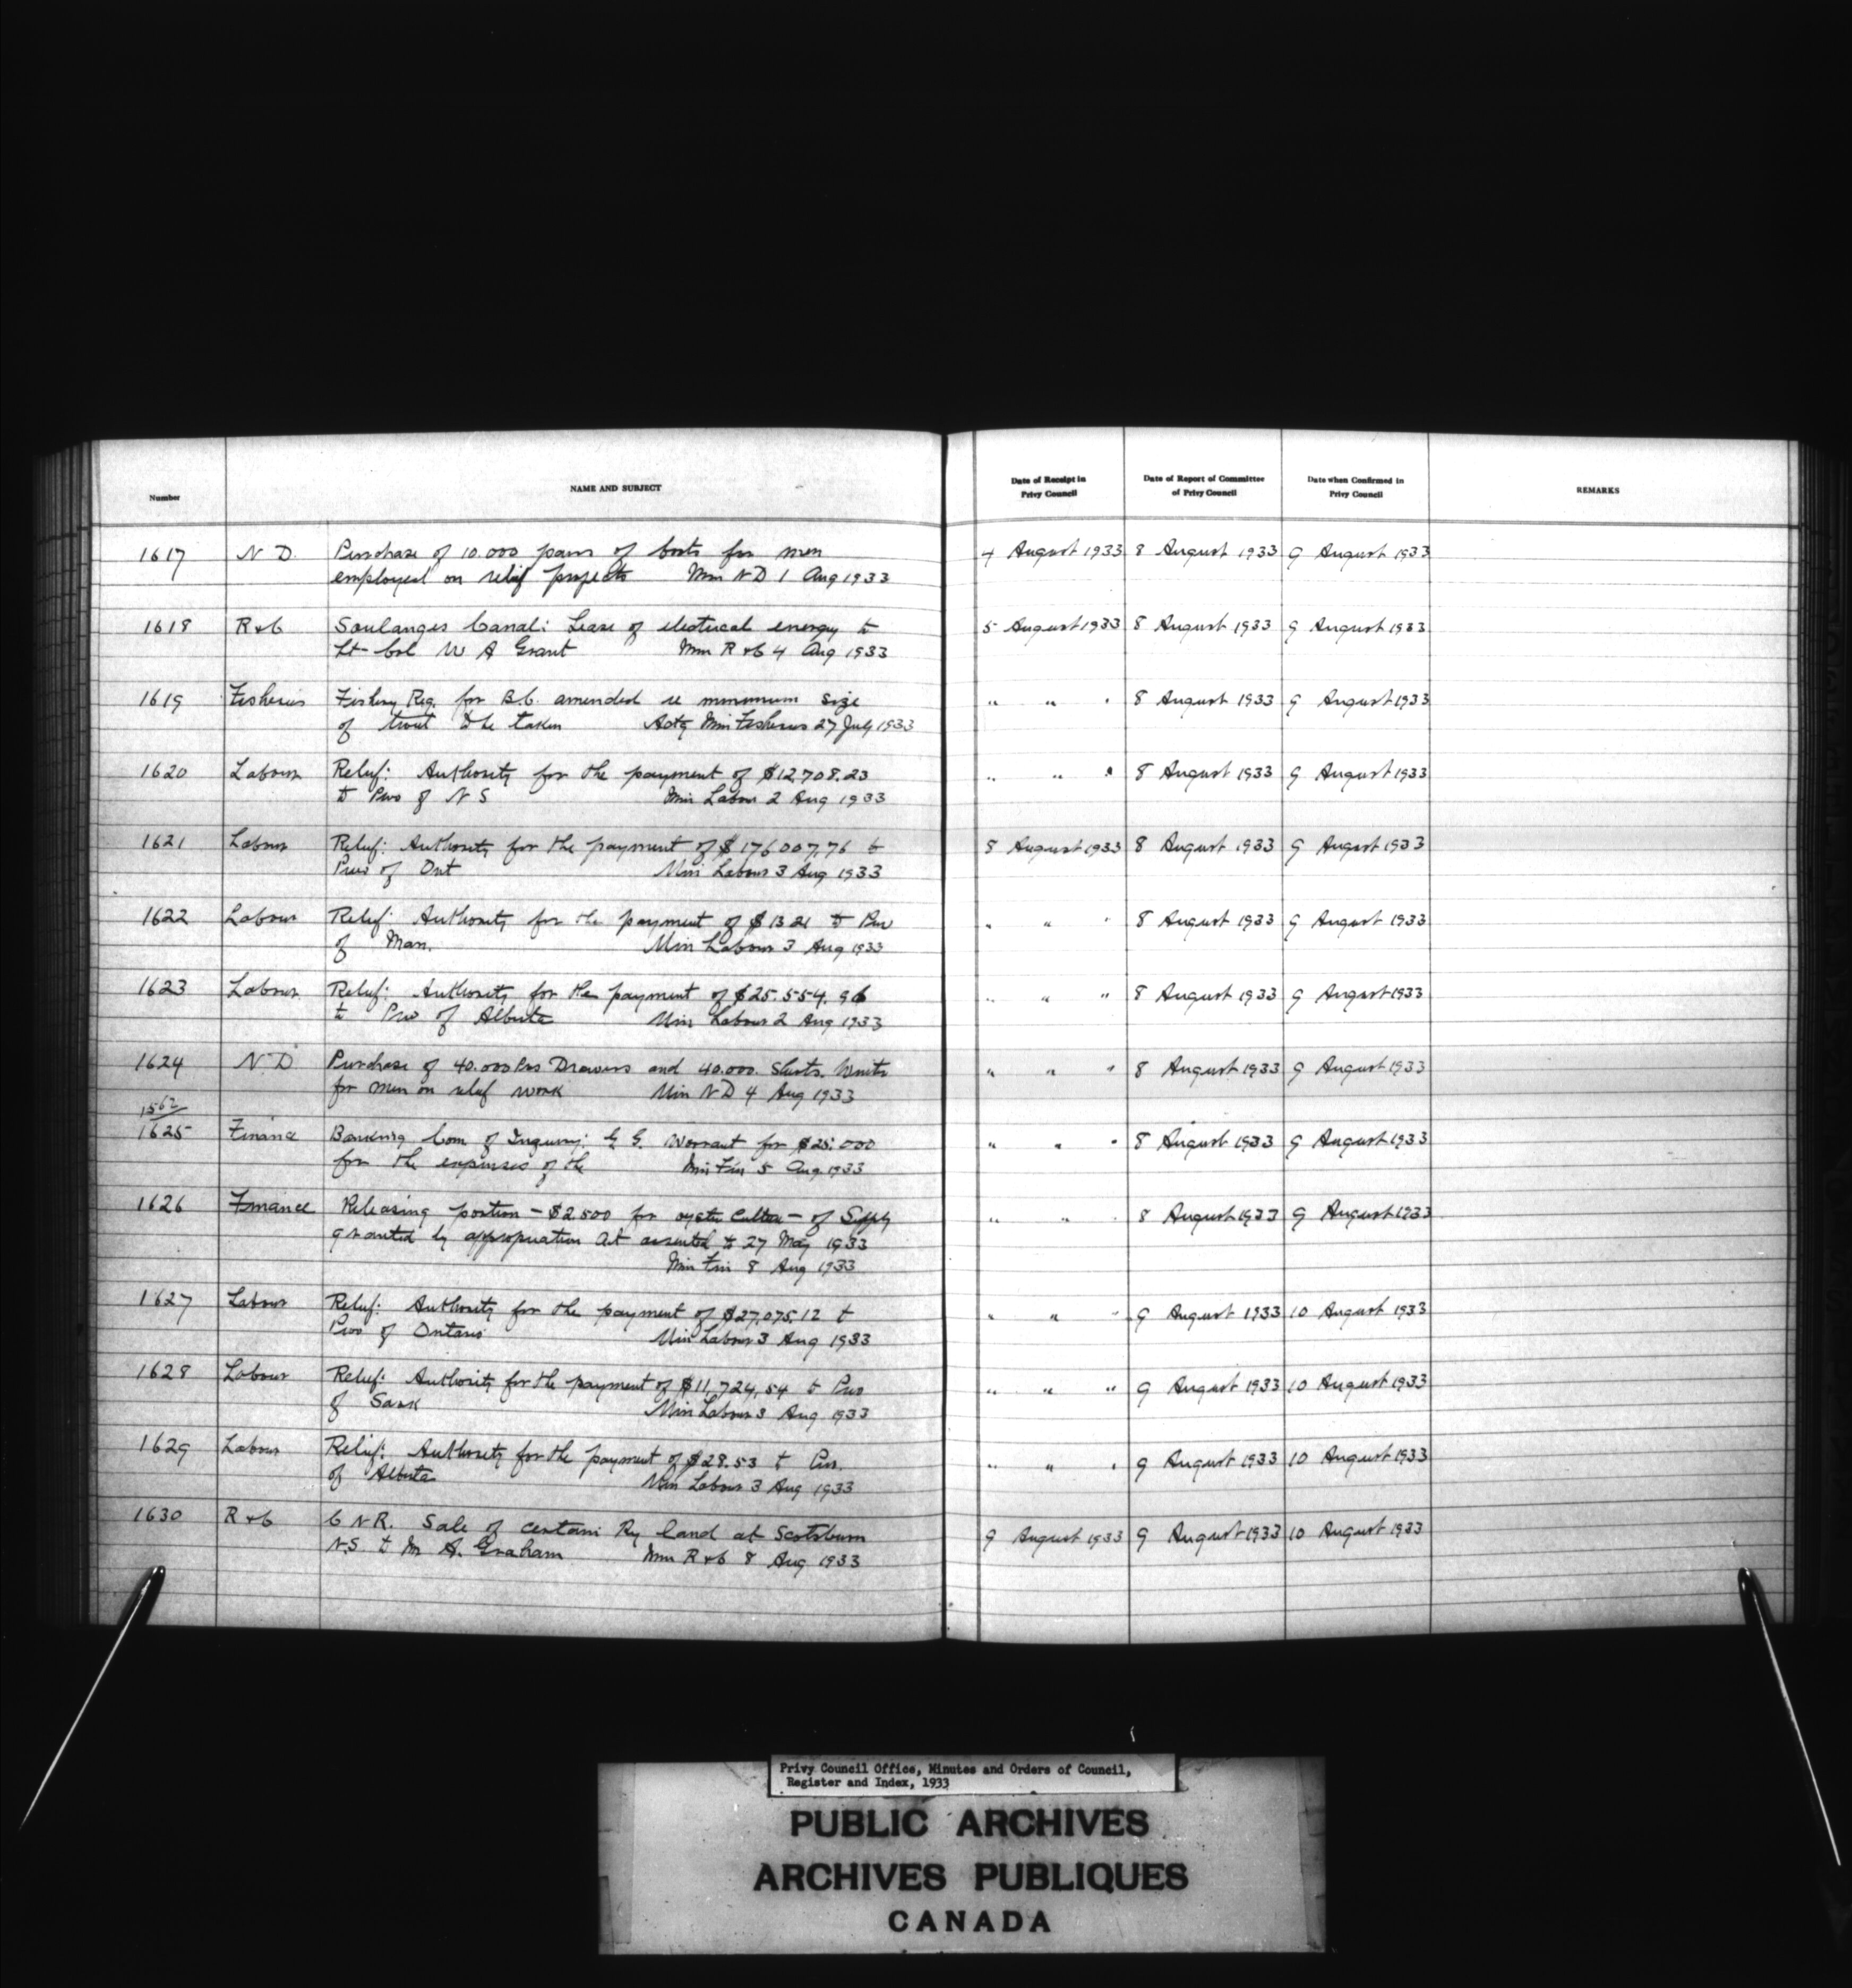 Number
NAME AND SUBJECT
Date of Receipt in
Privy Council
Date of Report of Committee
of Privy Council
Date when Confirmed in
Privy Council
REMARKS
1617 N D. Purchase of 10.000 pairs of boots for men 4 August 1933 8 August 1933 9 August 1933
employed on relief projects Min N D 1 Aug 1933
1618 R & C Soulanges Canal: Lease of electrical energy to 5 August 1933 8 August 1933 9 August 1933
Lt Col W A Grant Min R & C 4 Aug 1933
1619 Fisheries Fishery Reg. for B.C. amended re minimum size " " " 8 August 1933 9 August 1933
of trout to be taken Actg Min Fisheries 27 July 1933
1620 Labour Relief: Authority for the payment of $12,708.23 " " " 8 August 1933 9 August 1933
to Prov of N S Min Labour 2 Aug 1933
1621 Labour Relief: Authority for the payment of $176007.76 to 8 August 1933 8 August 1933 9 August 1933
Prov of Ont Min Labour 3 Aug 1933
1622 Labour Relief: Authority for the payment of $13 21 to Prov " " " 8 August 1933 9 August 1933
of Man. Min Labour 3 Aug 1933
1623 Labour Relief: Authority for the payment of $25.554.96 " " " 8 August 1933 9 August 1933
to Prov of Alberta Min Labour 2 Aug 1933
1624 N D Purchase of 40.000 Prs Drawers and 40.000. Shirts. Winter " " " 8 August 1933 9 August 1933
for men on relief work Min N D 4 Aug 1933
1562
1625 Finance Banking Com of Inquiry: G G. Warrant for $25.000 " " " 8 August 1933 9 August 1933
for the expenses of the Min Fin 5 Aug 1933
1626 Finance Releasing portion - $2.500 for oyster culture - of Supply " " " 8 August 1933 9 August 1933
granted by appropriation Act assented to 27 May 1933
Min Fin 8 Aug 1933
1627 Labour Relief: Authority for the payment of $27,075.12 to " " " 9 August 1933 10 August 1933
Prov of Ontario Min Labour 3 Aug 1933
1628 Labour Relief: Authority for the payment of $11,724.54 to Prov " " " 9 August 1933 10 August 1933
of Sask Min Labour 3 Aug 1933
1629 Labour Relief: Authority for the payment of $28.53 to Prov. " " " 9 August 1933 10 August 1933
of Alberta Min Labour 3 Aug 1933
1630 R & C C N R. Sale of certain Ry land at Scotsburn 9 August 1933 9 August 1933 10 August 1933
N.S. to M A. Graham Min R & C 8 Aug 1933
Privy Council Office, Minutes and Orders of Council,
Register and Index, 1933
PUBLIC ARCHIVES
ARCHIVES PUBLIQUES
CANADA